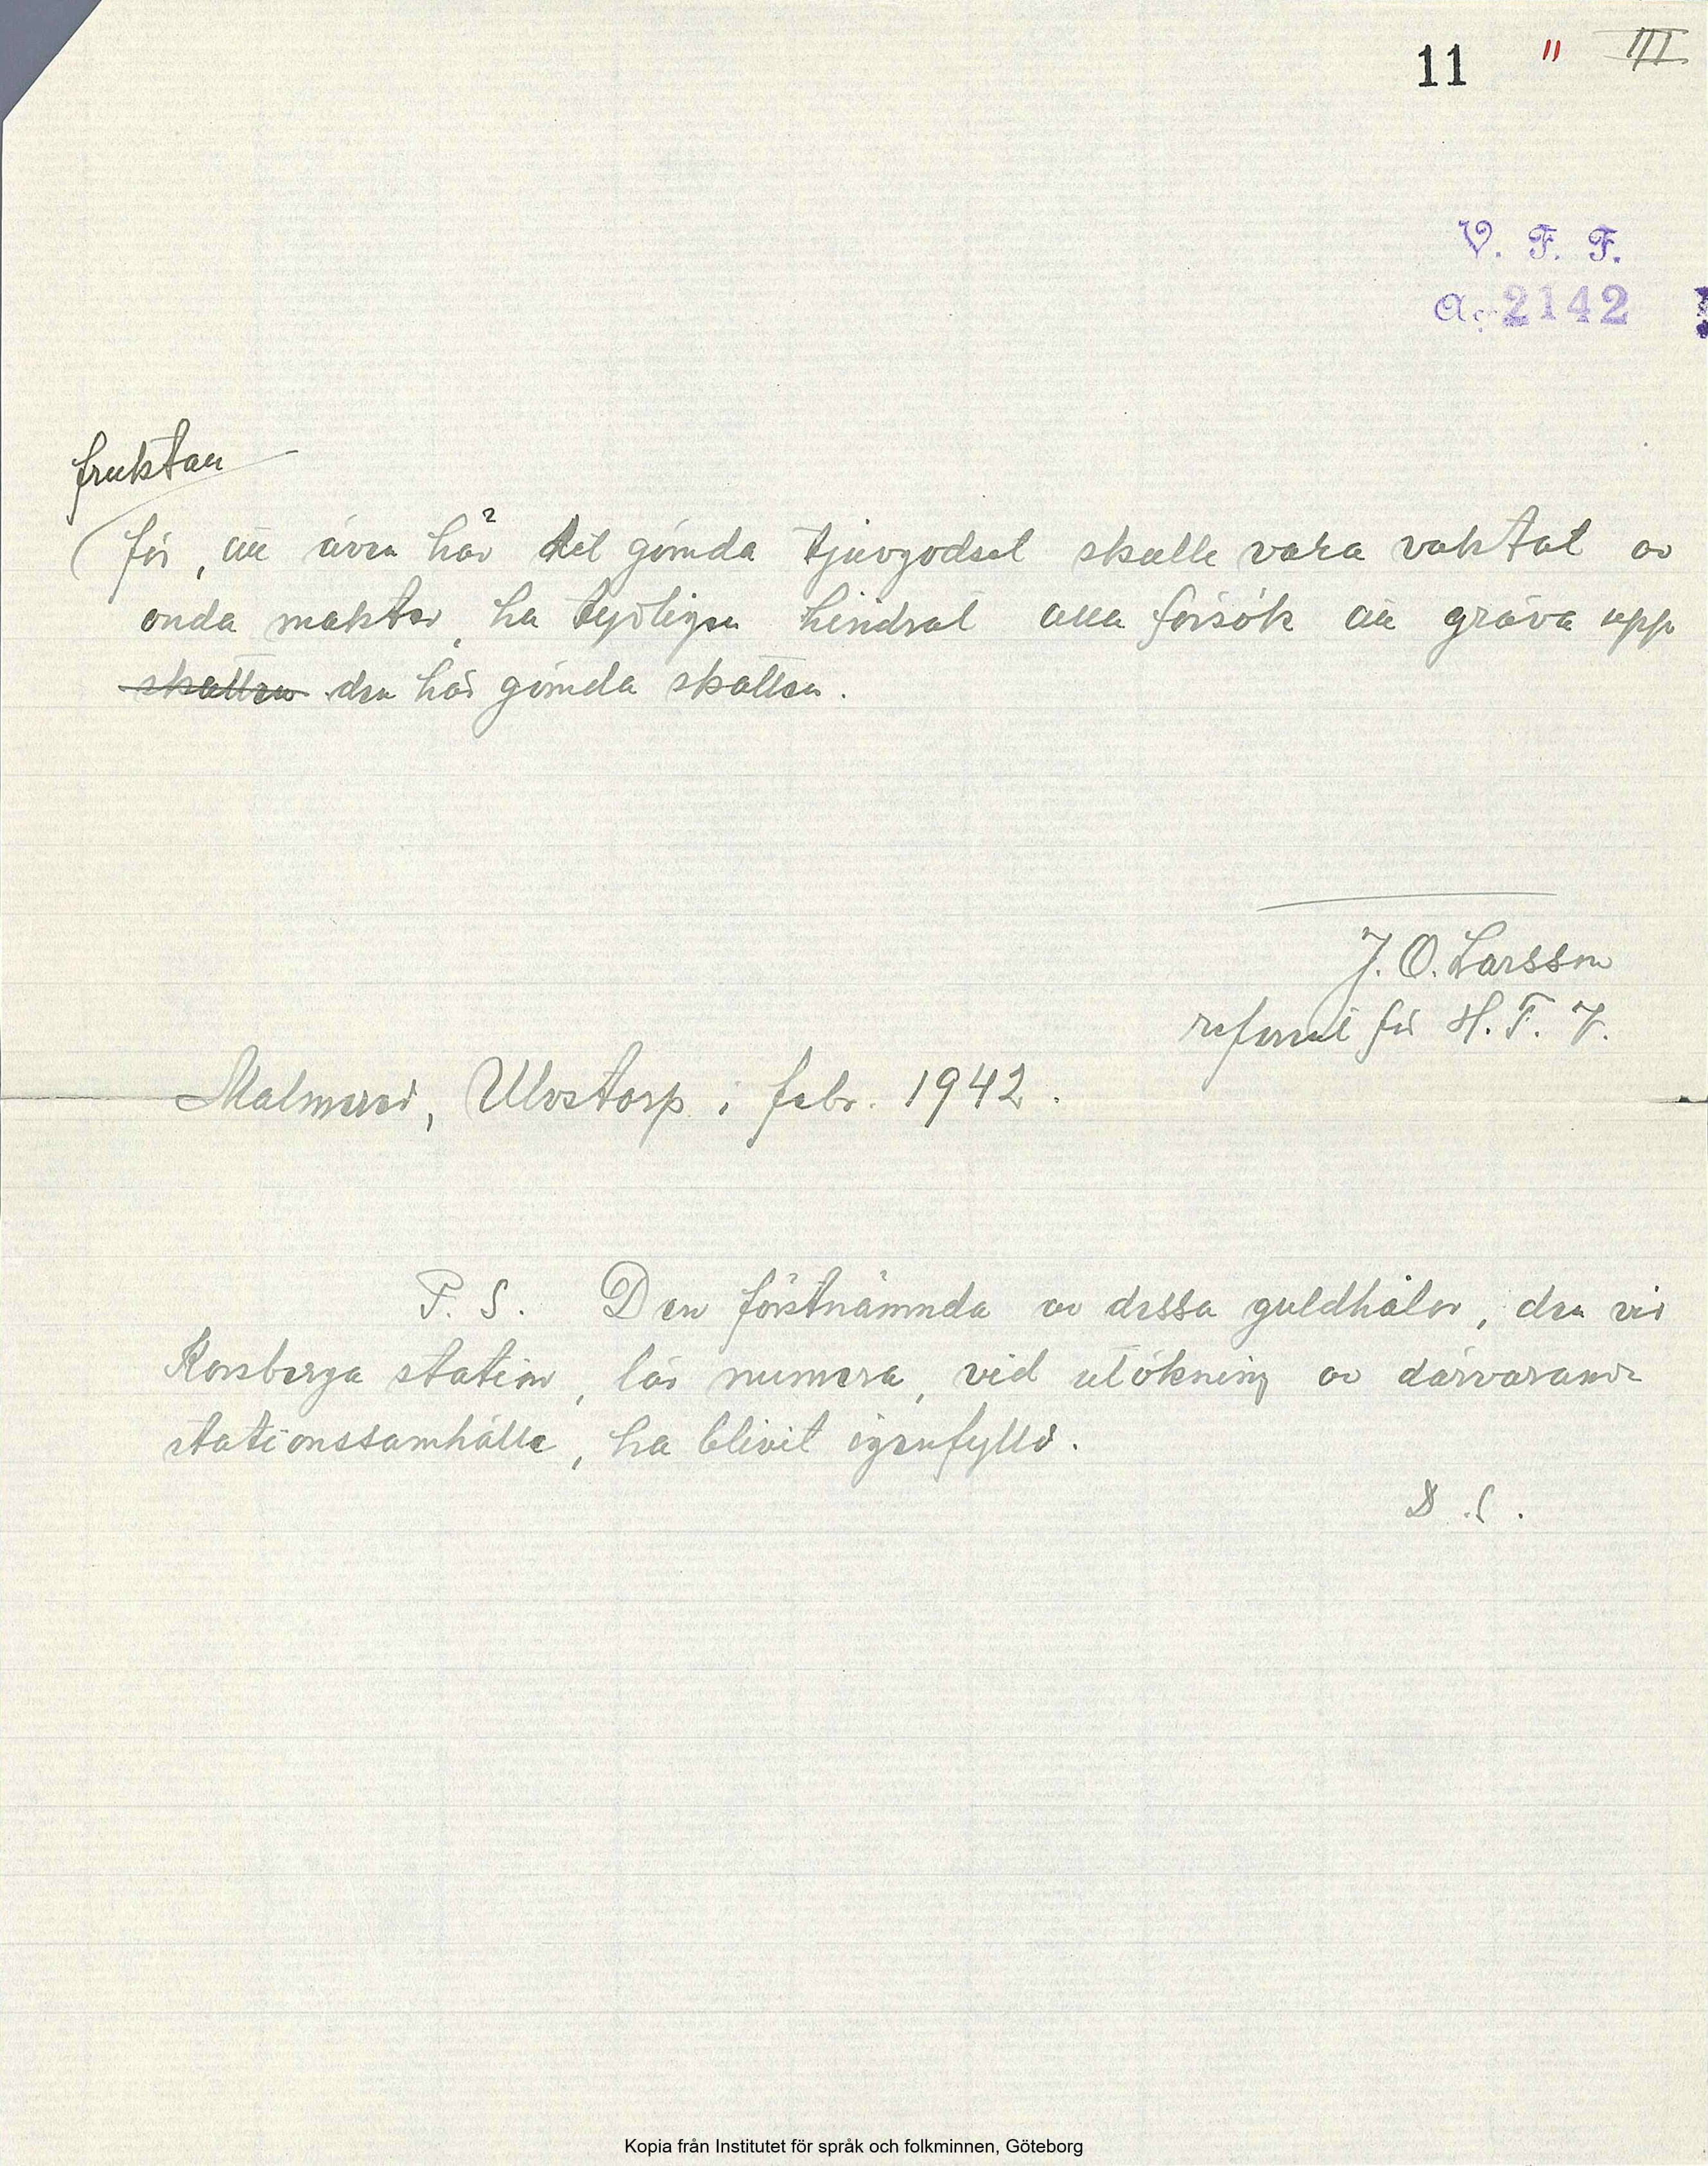 11 " III
V. F. F.
A. 2142
fruktan
för, att även här det gömda tjuvgodset skulle vara vaktat av
onda makter, ha tydligen hindrat alla försök att gräva upp
skatten den här gömda skatten.
J. O. Larsson
referent för
Ulvstorp i febr. 1942.
P. S. Den förstnämnda av dessa guldhålor, den vid
Korsberga station, lär numera, vid utökning av därvarande
stationssamhälle, ha blivit igenfylld.
D. S.
Kopia från Institutet för språk och folkminnen, Göteborg